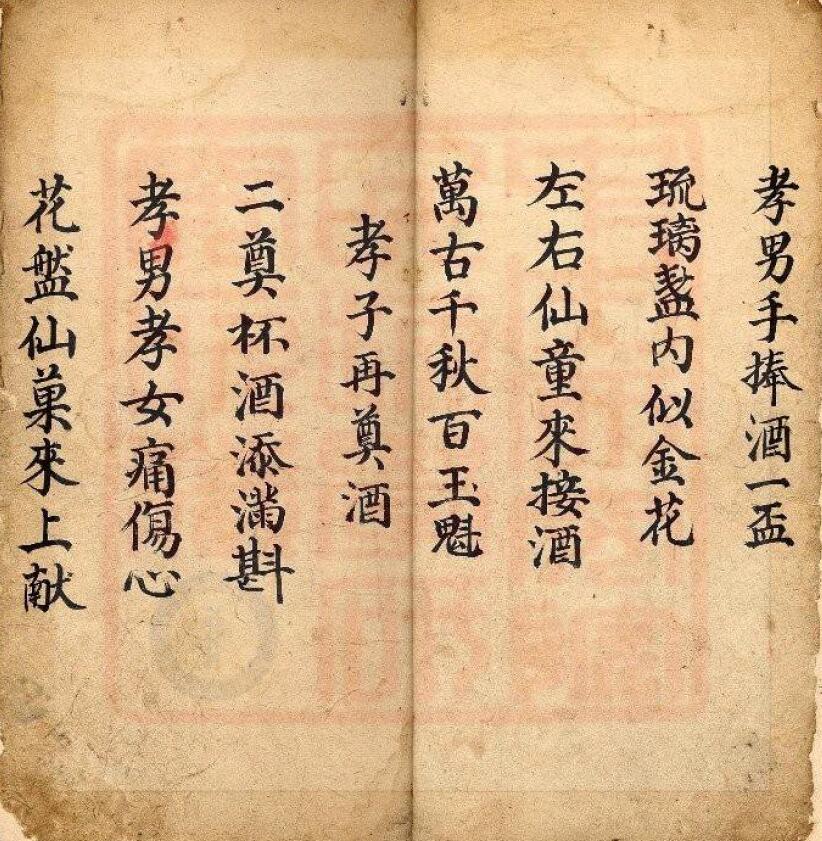 孝男手捧酒一盃
琉璃盏内似金花
左右仙童來接酒
萬古千秋百玉魁
孝子再奠酒
二奠杯酒添滿斟
孝男孝女痛傷心
花盤仙菓來上献